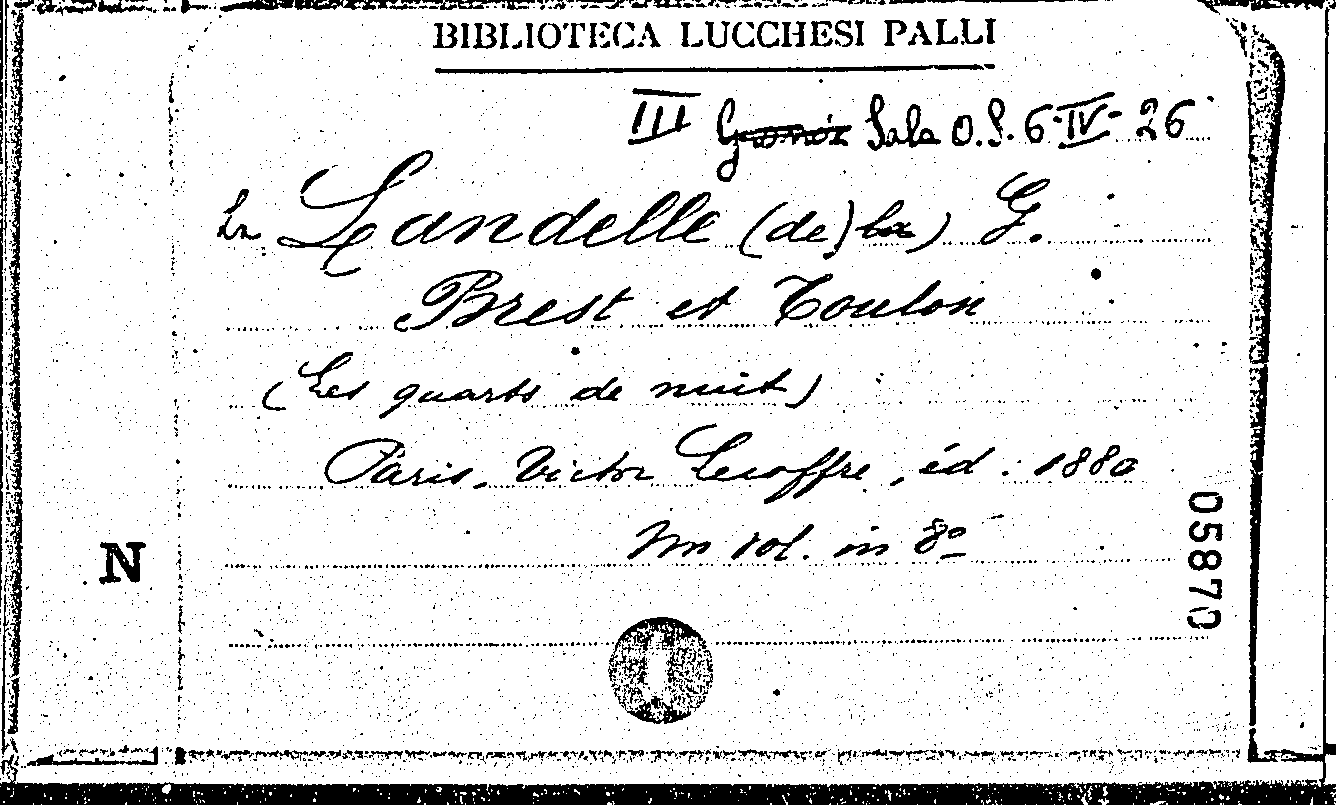 BIBLIOTECA LUCCHESI PALLI
III Sala O.S. 6-IV-26
La Landelle (de) la) G.
Brest et Toulon
(Les quarts de nuit)
Paris, Victor Lecoffre, éd. 1880
Un vol. in 8º
05870
N